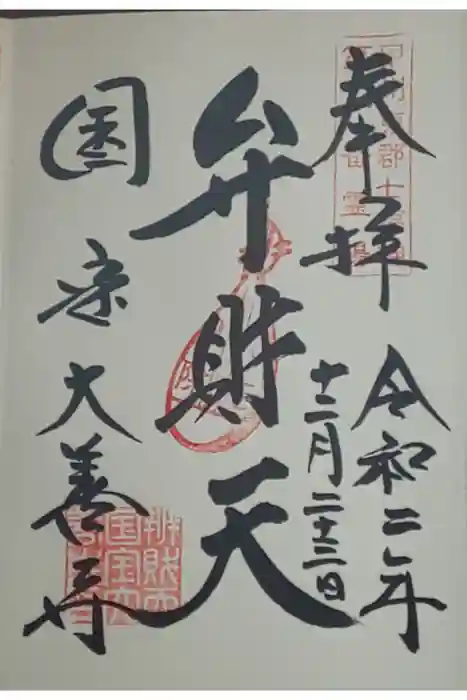 奉拝
令和二年
十二月二十三日
弁財天
国宝
大善寺
辨財天
国宝大